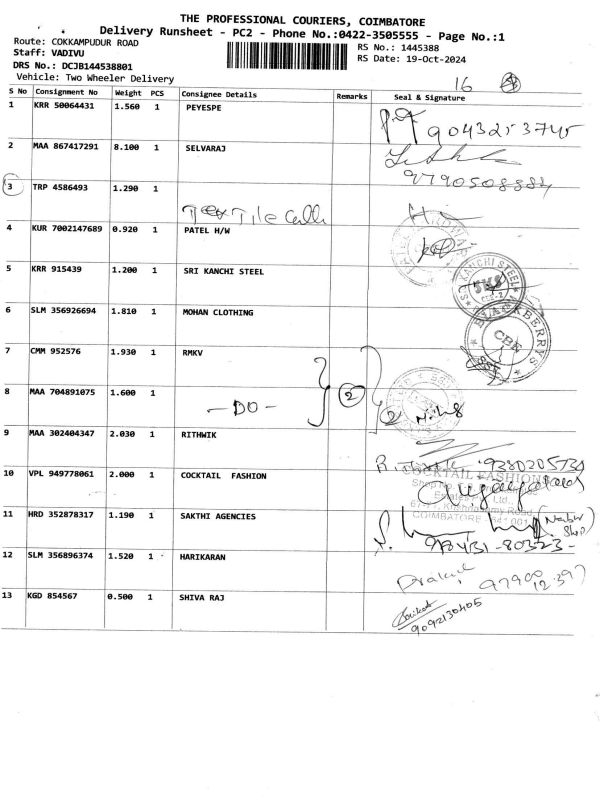 THE PROFESSIONAL COURIERS, COIMBATORE
Delivery Runsheet - PC2 - Phone No.:0422-3505555 - Page No.:1
Route: COKKAMPUDUR ROAD
Staff: VADIVU
DRS No.: DCJB144538801
Vehicle: Two Wheeler Delivery
RS No.: 1445388
RS Date: 19-Oct-2024
16
S No Consignment No Weight PCS Consignee Details Remarks Seal & Signature
1 KRR 50064431 1.560 1 PEYESPE
9043253745
2 MAA 867417291 8.100 1 SELVARAJ
9790508884
3 TRP 4586493 1.290 1
4 KUR 7002147689 0.920 1 PATEL H/W
5 KRR 915439 1.200 1 SRI KANCHI STEEL
S. KANCHI STEEL
SKS
CBE-2
6 SLM 356926694 1.810 1 MOHAN CLOTHING
BLACKBERRYS
CBE
7 CMM 952576 1.930 1 RMKV
2
8 MAA 704891075 1.600 1
-DO-
2
9 MAA 302404347 2.030 1 RITHWIK
9380205730
10 VPL 949778061 2.000 1 COCKTAIL FASHION
COCKTAIL FASHIONS
COIMBATORE - 641 001
11 HRD 352878317 1.190 1 SAKTHI AGENCIES
98431-80323-
12 SLM 356896374 1.520 1 HARIKARAN
97900
12397
13 KGD 854567 0.500 1 SHIVA RAJ
9092130405